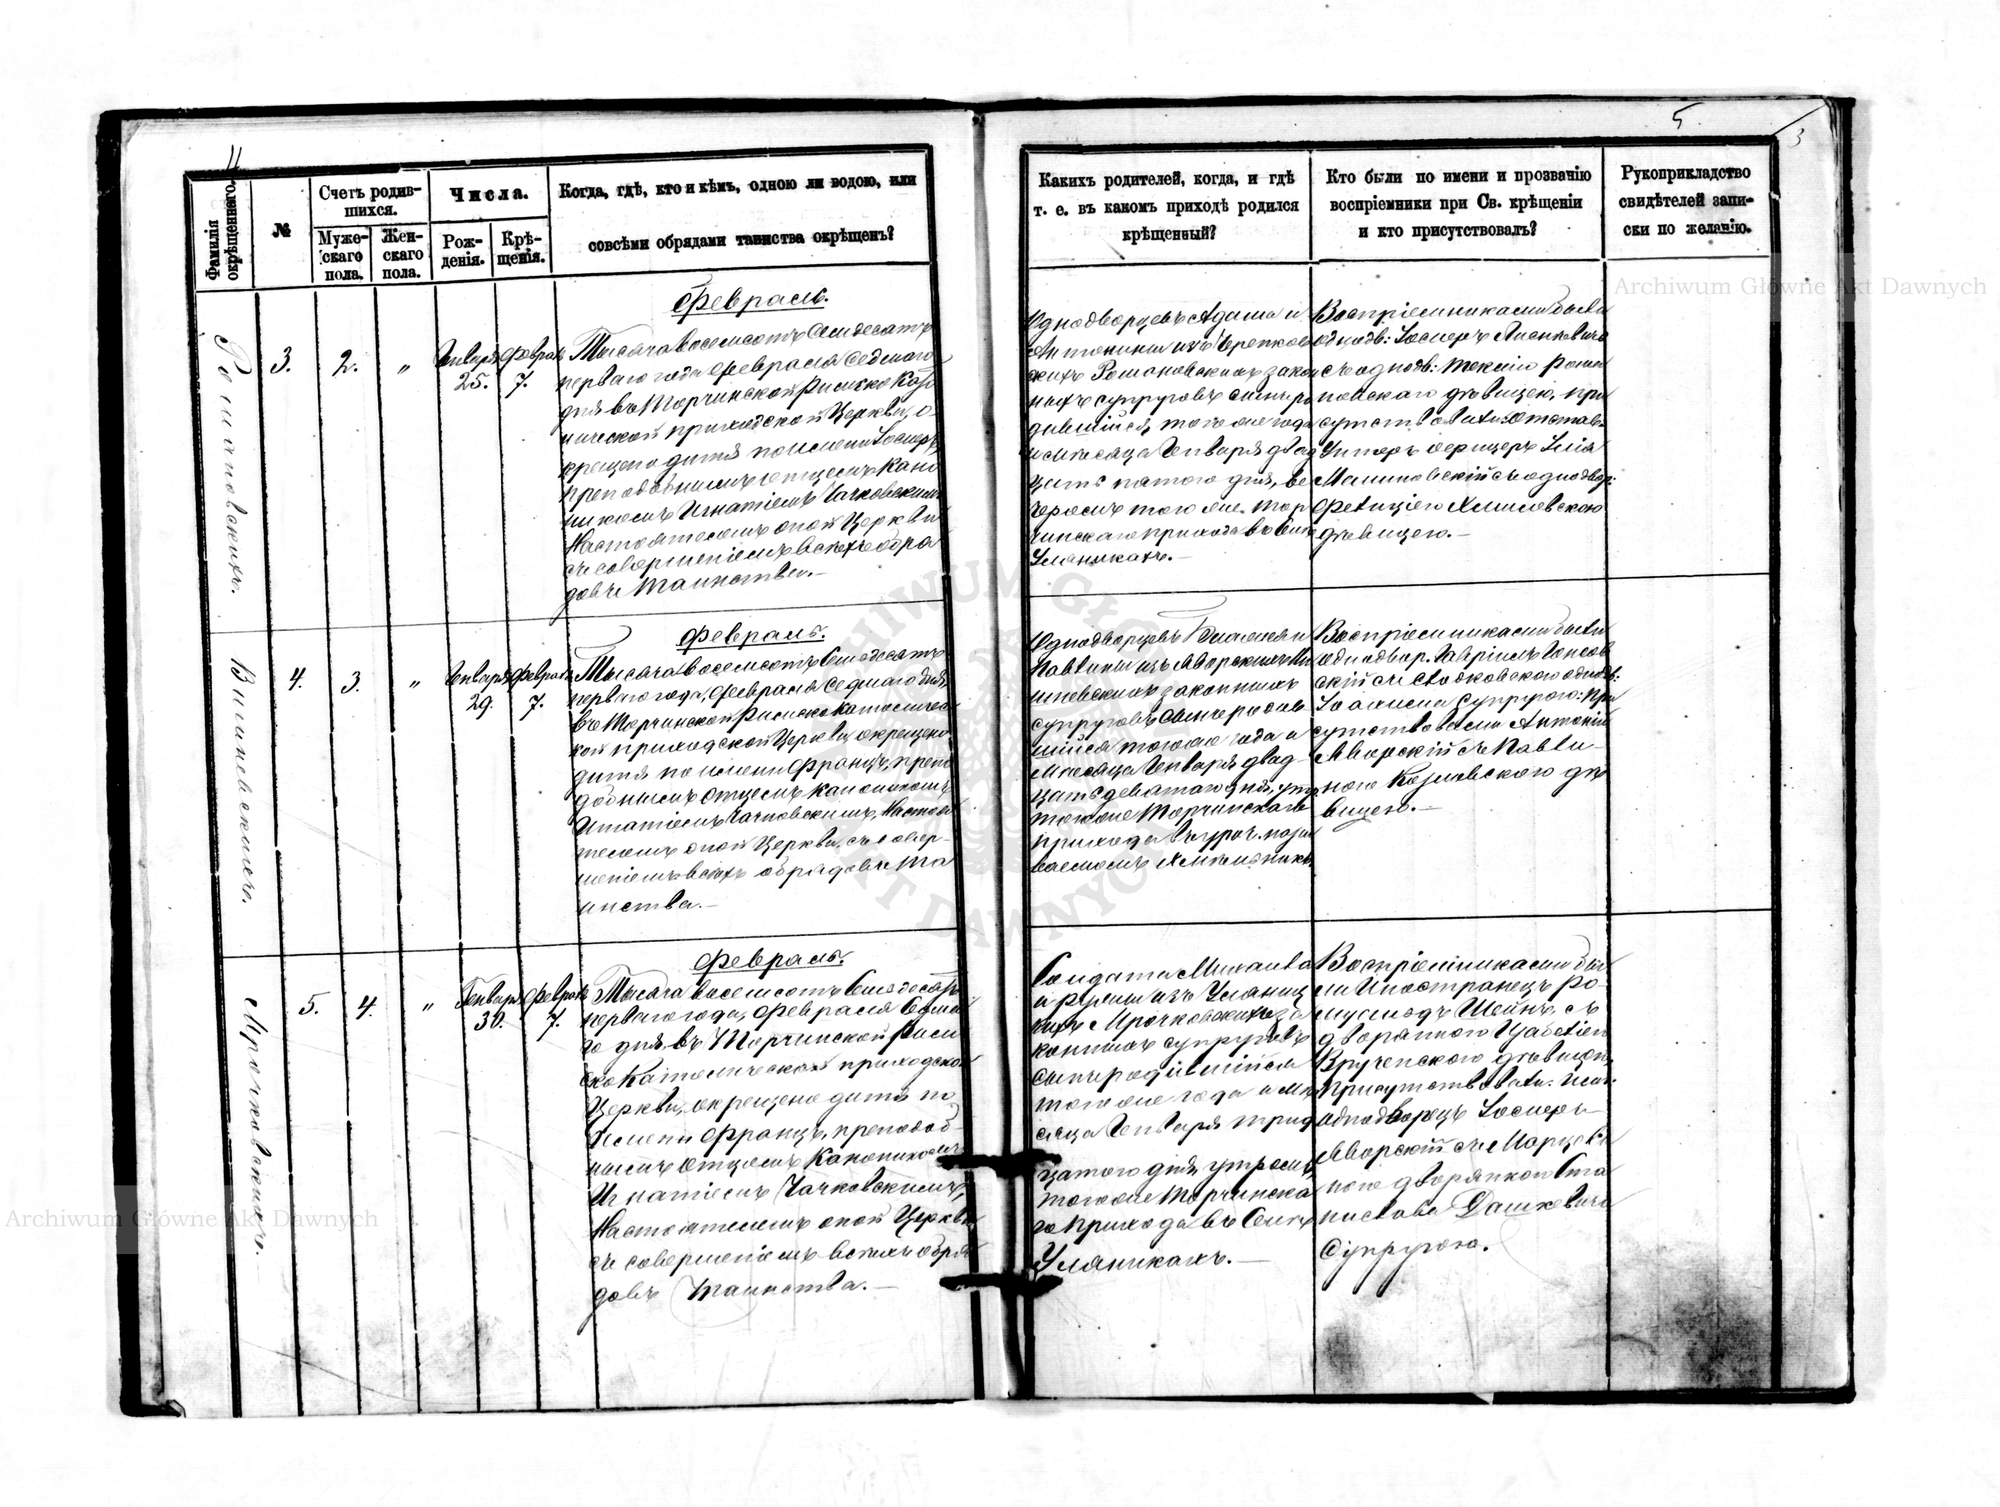 11
5
3
Фамилія окрѣщеннаго.
№
Счетъ родив-
шихся.
Муже-
скаго
пола.
Жен-
скаго
пола.
Числа.
Рож-
денія.
Крѣ-
щенія.
Когда, гдѣ, кто и кѣмъ, одною ли водою, или
совсѣми обрядами таинства окрѣщенъ?
Каких​ъ родителей, когда, и гдѣ
т. е. въ какомъ приходѣ родился
крѣщенный?
Кто были по имени и прозванію
воспріемники при Св. крѣщеніи
и кто присутствовалъ?
Рукоприкладство
свидѣтелей запи-
ски по желанію.
Романовскихъ.
3.
2.
"
Генваря
25.
Феврал
7.
Февраль.
Тысяча восемсотъ Семдесятъ
перваго года Февраля Седмаго
дня въ Торчинской Римско Като
лической приходской Церкви, о-
крещено дитя по имени Іосифъ,
преподобнымъ Отцемъ Кано
никомъ Игнатіемъ Чачковскимъ
Настоятелемъ оной Церкви
съ совершеніемъ всѣхъ обря
довъ Таинства.-
Однодворцевъ Адама и
Антонины изъ
Романовскихъ закон
ныхъ супруговъ сынъ ро
дившійся, того же года
и мѣсяца Генваря двад
цать пятаго дня, ве
черомъ того же Тор
чинскаго прихода въ Селѣ
Уляникахъ.-
Воспріемниками были
однодв: Іосифъ
съ однодв: Теклію Рома
новскаго дѣвицею, при
сутствовали: Отстав.
Унтеръ офицеръ Илія
Малиновскій съ однодвор:
дѣвицею.-
Вишневскихъ.
4.
3.
"
Генваря
29.
Феврал
7.
Февраль.
Тысяча восемсотъ Семдесятъ
перваго года, Февраля Седмаго дня
въ Торчинской Римско Католичес
кой приходской Церкви, окрещено
дитя по имени Францъ, препо
добнымъ Отцемъ Каноникомъ
Игнатіемъ Чачковскимъ, Настоя
телемъ оной Церкви, съ совер-
шеніемъ всѣхъ обрядовъ Та
инства.-
Однодворцевъ
Павлины изъ Яворскихъ Ви
шневскихъ законныхъ
супруговъ сынъ родив
шійся того же года и
мѣсяца Генваря двад-
цать девятаго дня, утр
того же Торчинскаго
прихода въ уроч. назы
ваемомъ
Воспріемниками были
однодвор. Гавріилъ
скій съ
супругою: при
сутствовали Антоній
Яворскій съ Павли-
ною Козловскою дѣ
вицею.-
Мрочковскихъ.
5.
4.
"
Генвар
30.
Феврал
7.
Февраль.
Тысяча восемсотъ Семдесятъ
перваго года, Февраля Седма
го дня въ Торчинской Рим
ско Католической приходской
Церкви, окрещено дитя по
имени Францъ, преподоб-
нымъ Отцемъ Каноникомъ
Игнатіемъ Чачковскимъ,
Настоятелемъ оной Церкви
съ совершеніемъ всѣхъ обря
довъ Таинства.-
Солдата Михаила
и изъ
кихъ Мрочковскихъ за
конныхъ супруговъ
сынъ родившійся
того же года и мѣ
сяца Генваря трид
цатого дня утромъ,
того же Торчинска
го прихода въ Селѣ
Уляникахъ.-
Воспріемниками бы
ли Иностранецъ Ро
съ
дворянкою
дѣвицею,
Присутствовали:
однодворецъ Іосифъ
Яворскій съ Марцел
ною дворянкою Ста
нислава Дашкевича
Супругою.
Archiwum Główne Akt Dawnych
Archiwum Główne Akt Dawnych
ARCHIWUM GŁÓWNE AKT DAWNYCH